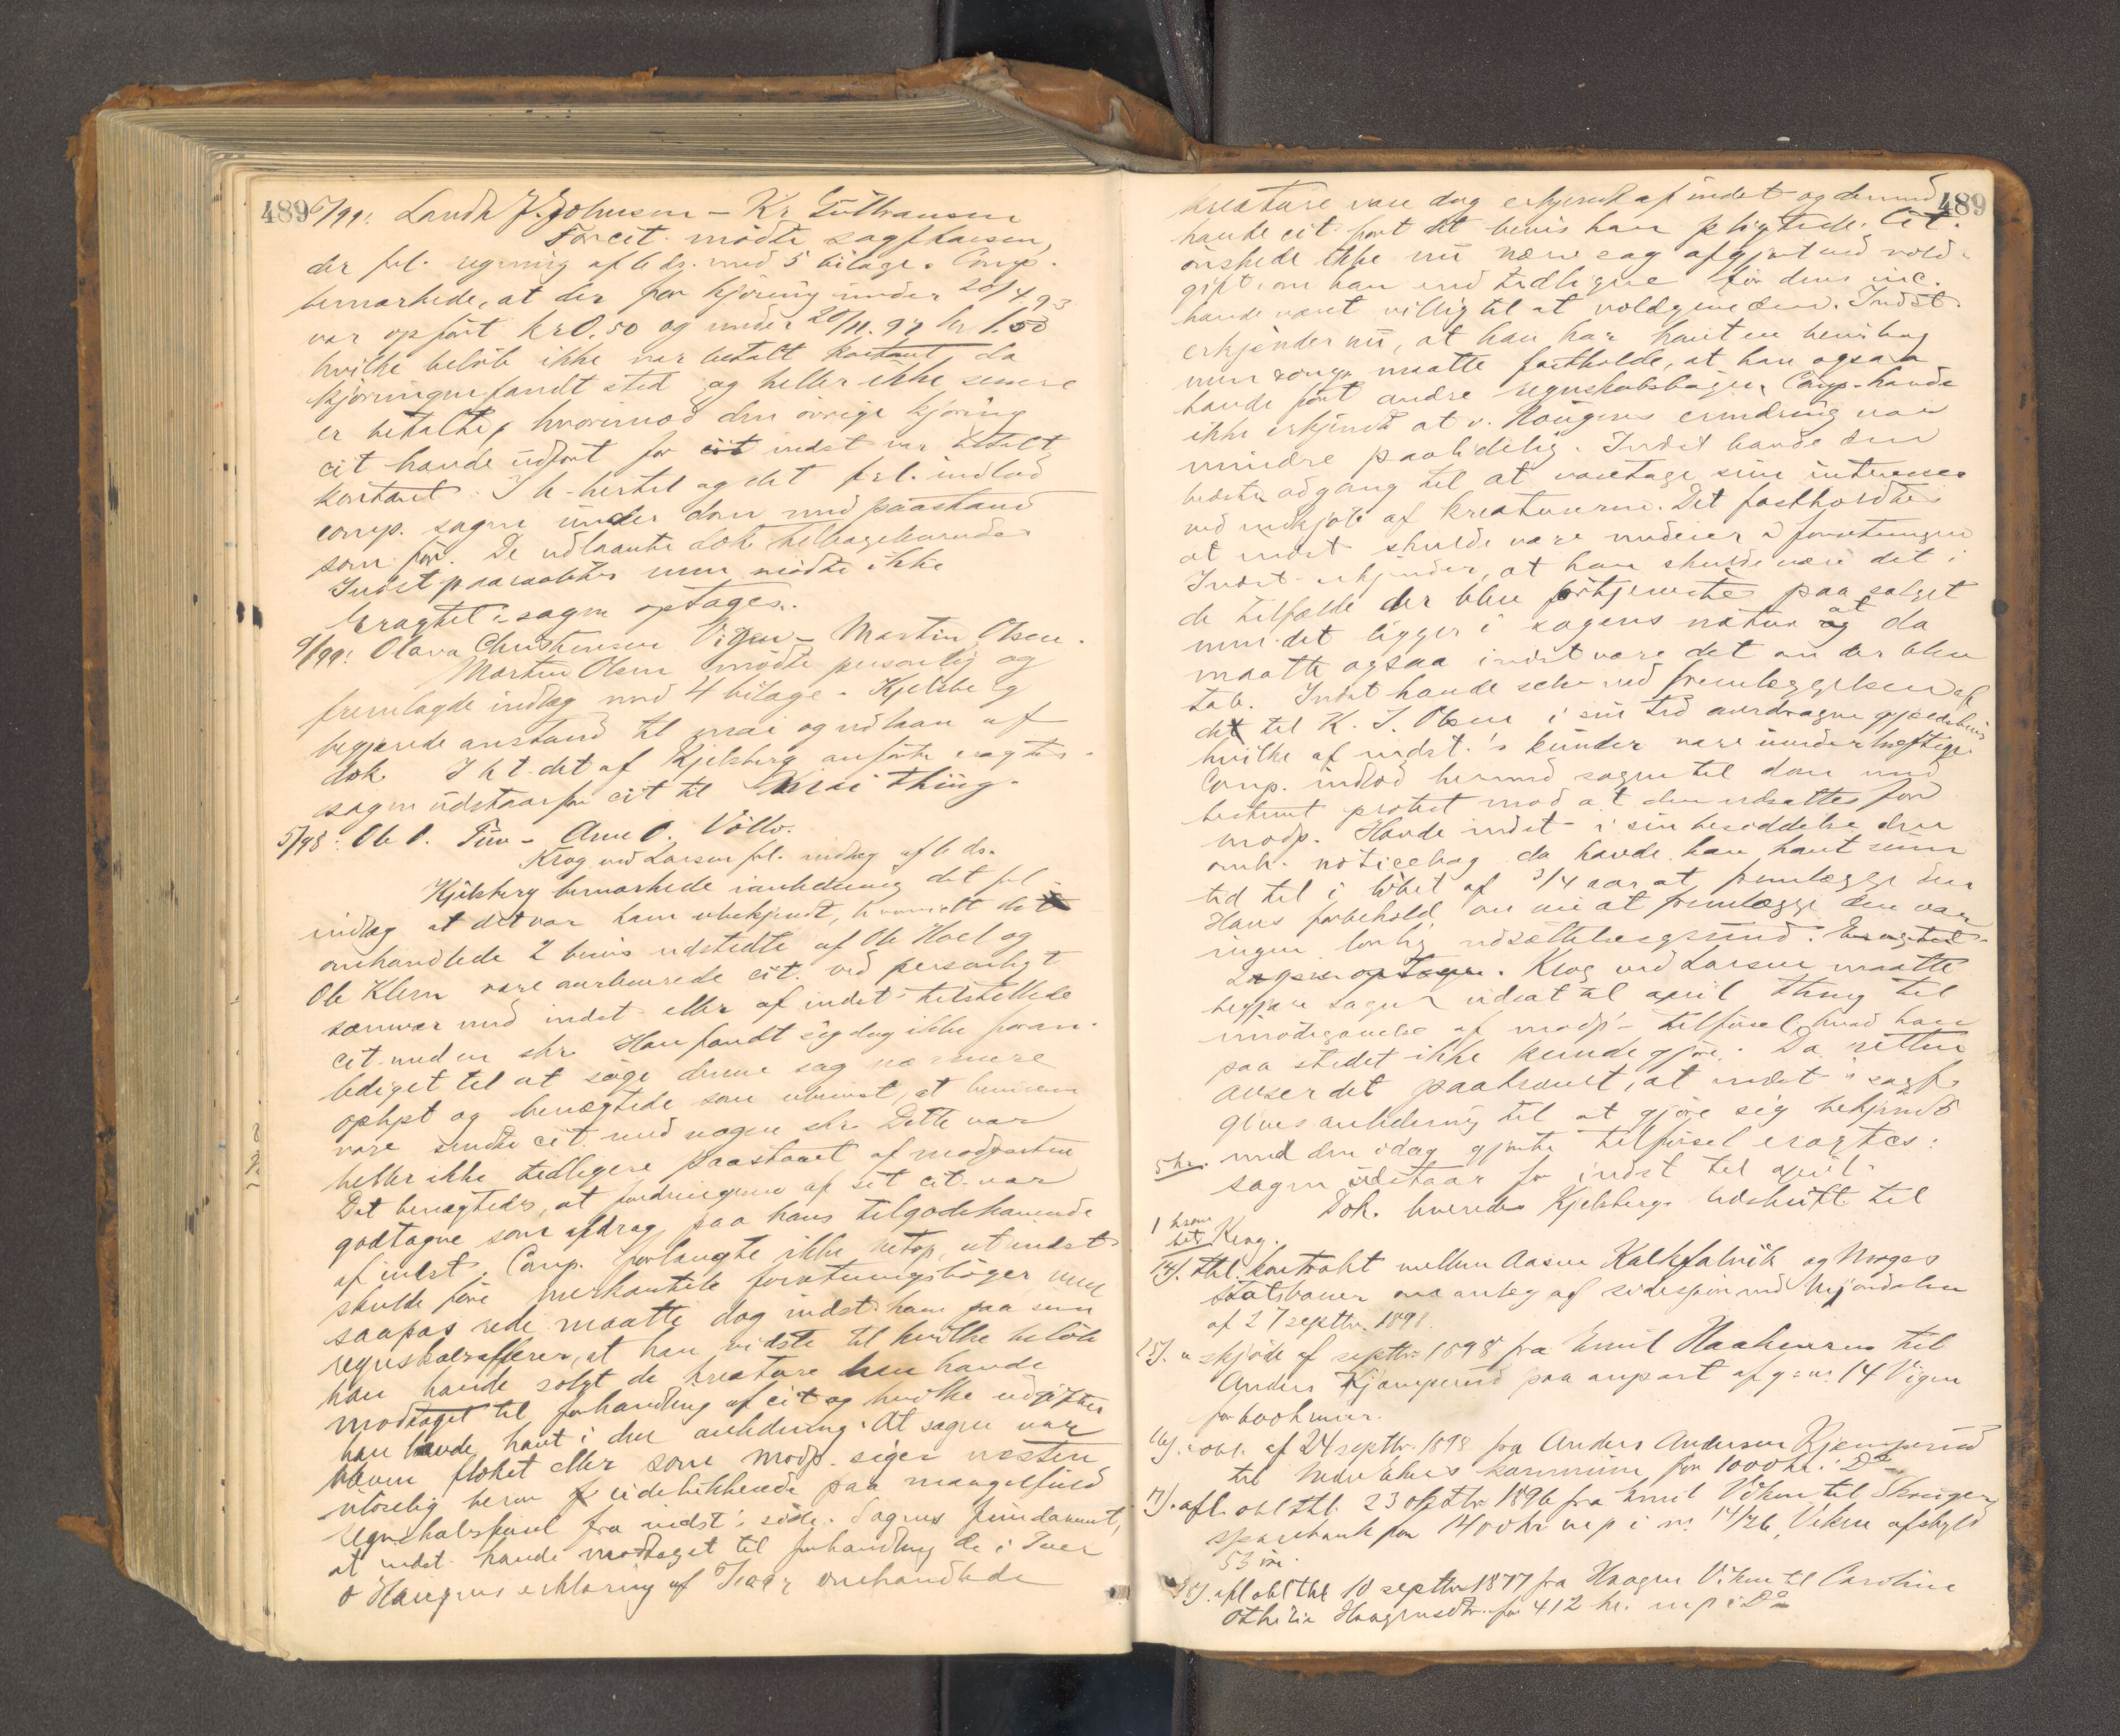 489 6/99: Landh J. Johnsen – Kr Gulbransen
For cit. mødte sagf Larsen,
der frl. regning af 6 ds. med 5 bilage. Comp.
bemærkede, at der for kjøring under 20/4.93
var opført kr 0.50 og under 20/11.97 kr 1.50
hvilke beløb ikke var betalt kontant, da
kjøringen fandt sted og heller ikke senere
er betalte, hvorimod den øvrige kjøring
cit havde udført for indst var betalt
kontant. I h-t hertil og det frl. indlod
comp. sagen under dom med paastand
som før. De udlaante dok. tilbageleveredes
Indst paaraabtes men mødte ikke
Eragtet: sagen optages.
9/99: Olava Christensen Vigen – Martin Olsen.
Martin Olsen mødte personlig og
fremlagde indlæg med 4 bilage. Kjelsberg
begjærede anstand til mai og udlaan af
dok. I h t. det af Kjelsberg anførte eragtes
sagen udstaar for cit til Mai thing.
5/98: Ole O. Tuv – Arne O. Vollo.
Krog ved Larsen frl. indlæg af 6 ds.
Kjelsberg bemærkede i anledning det frl.
indlæg at det var ham ubekjendt, hvorvidt de
omhandlede 2 bevis udstedte af Ole Hoel og
Ole Klem vare overleverede cit. ved personligt
samvær med indst eller af indst tilstillede
cit med en skr. Han fandt sig dog ikke foran-
lediget til at søge denne sag nærmere
oplyst og benægtede som ubevist, at beviserne
vare sendte cit med nogen skr. Dette var
heller ikke tidligere paastaaet af modparten
Det benægtedes, at fordringerne af sit cit. var
godtagne som afdrag paa hans tilgodehavende
af indst. Comp. forlangte ikke netop, at indst
skulde føre merkantile forretningsbøger, men
saapas rede maatte dog indst have paa sine
regnskabsaffærer, at han vidste til hvilke beløb
han havde solgt de kreature han havde
modtaget til forhandling af cit og hvilke udgifter
han havde havt i den anledning. At sagen var
bleven floket eller som modp. siger næsten
uløselig beror udelukkende paa mangelfuld
regnskabsførsel fra indst's side. Sagens fundament,
at indst. havde modtaget til forhandling de i Iver
Haugens erklæring af omhandlede
489
kreature vare dog erkjendt af indst og dermed
havde cit. ført det bevis han pligtede. Cit.
ønskede ikke nu nærv. sag afgjort ved vold-
gift, om han end tidligere før dens inc.
havde været villig til at voldgive den. Indst.
erkjender nu, at han har havt en bevisbog
men maatte fastholde, at han ogsaa
havde ført andre regnskabsbøger. Comp. havde
ikke erkjendt at v. Haugens erindring var
mindre paalidelig. Indst havde den
bedste adgang til at varetage sine interesser
ved indkjøb af kreaturerne. Det fastholdtes
at indst skulde være medeier i forretningen
Indst. erkjender, at han skulde være det i
de tilfælde der blev fortjeneste paa salget
men det ligger i sagens natur at da
maatte ogsaa indst være det om der blev
tab. Indst havde selv ved fremlæggelsen af
det til K. J. Olsen i sin tid overdragne gjældsbevis
hvilke af indst.'s kunder vare underhæftige.
Comp. indlod hermed sagen til dom med
bestemt protest mod at den udsattes for
modp. Havde indst i sin besiddelse den
omh. noticebog da havde han havt
tid til i løbet af 3/4 aar at fremlægge den
Hans forbehold om nu at fremlægge den var
ingen lovlig udsættelsesgrund. Eragtet
sagen optages. Krog ved Larsen maatte
begjære sagen udsat til april thing til
imødegaaelse af modp's tilførsel, hvad han
paa stedet ikke kunde gjøre. Da retten
anser det paakrævet, at indst's sagf.
gives anledning til at gjøre sig bekjendt
5 kr. med den idag gjorte tilførsel eragtes:
sagen udstaar for indst til april.
Dok. leveredes Kjelsberg. Udskrift til
1 krone
Krog.
14). thl. kontrakt mellem Aasen Kalkfabrik og Norges
Statsbaner om anlæg af sidespor ved Mjøndalen
af 27 septbr. 1898.
15). " skjøde af septbr. 1898 fra Emil Haakensen til
Anders Kjæmperud paa anpart af g=nr. 14 Vigen
for 600 kroner.
16). " obl. af 24 septbr. 1898 fra Anders Andersen Kjæmperud
til kommune for 1000 kr. i Do
17). afl. obl thl. 23 1896 fra Emil Viken til
sparebank for 1400 kr m p i nr. 14/26, Viken afskyld
53 øre.
18). afl obl thl 10 septbr 1877 fra Haagen Viken til Caroline
Othilie Haagensdtr. for 412 kr. m p i Do